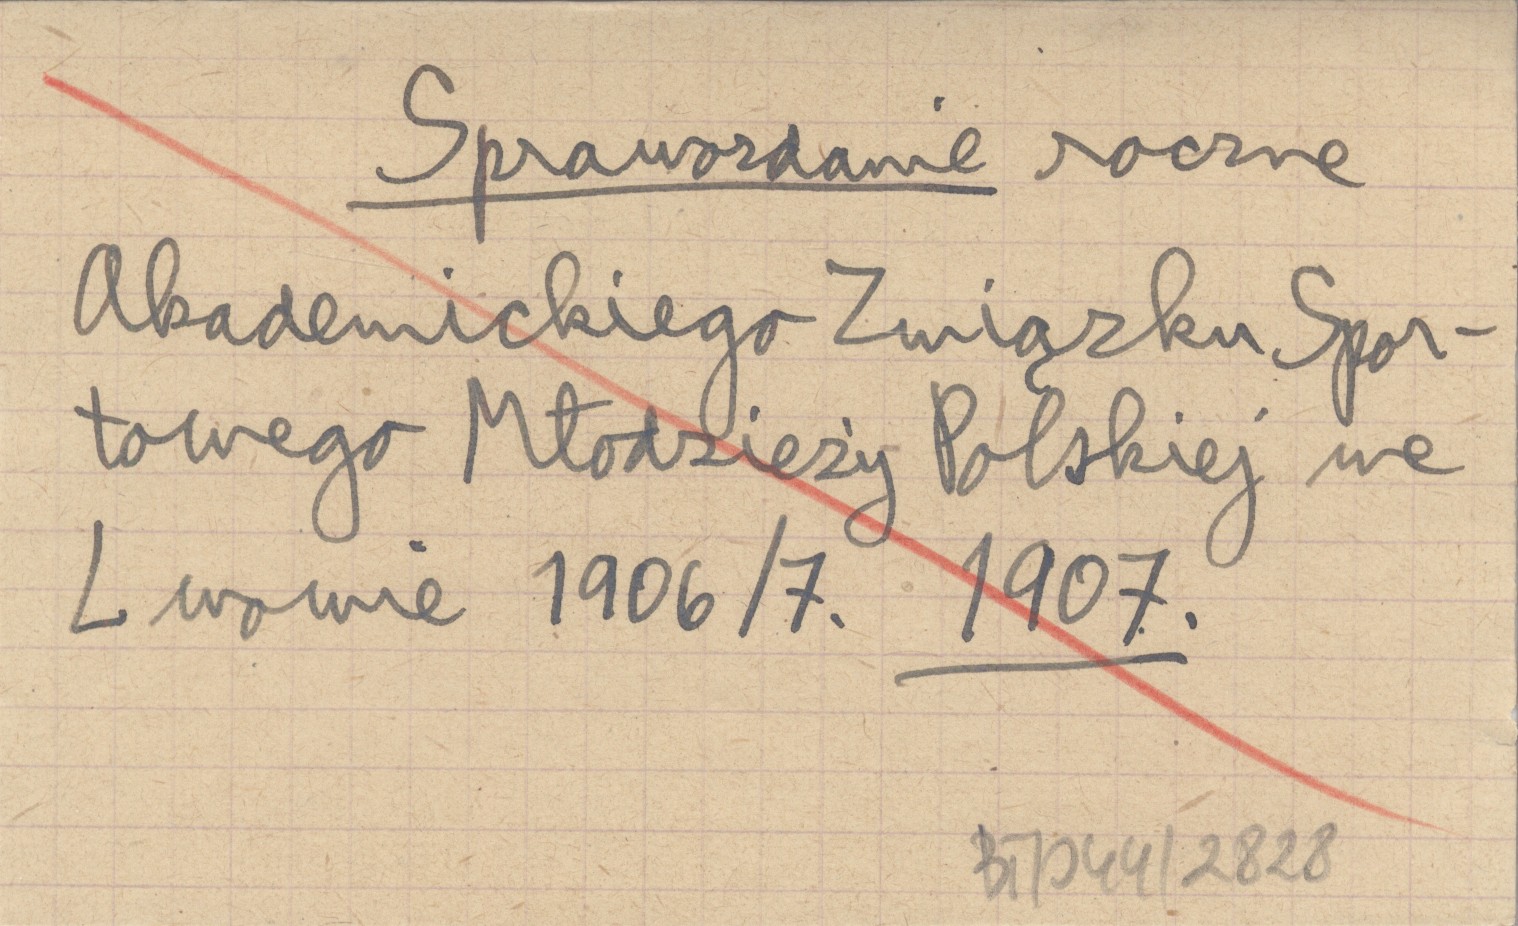 Sprawozdanie roczne
Akademickiego Związku Spor-
towego Młodzieży Polskiej we
Lwowie 1906/7. 1907.
2828